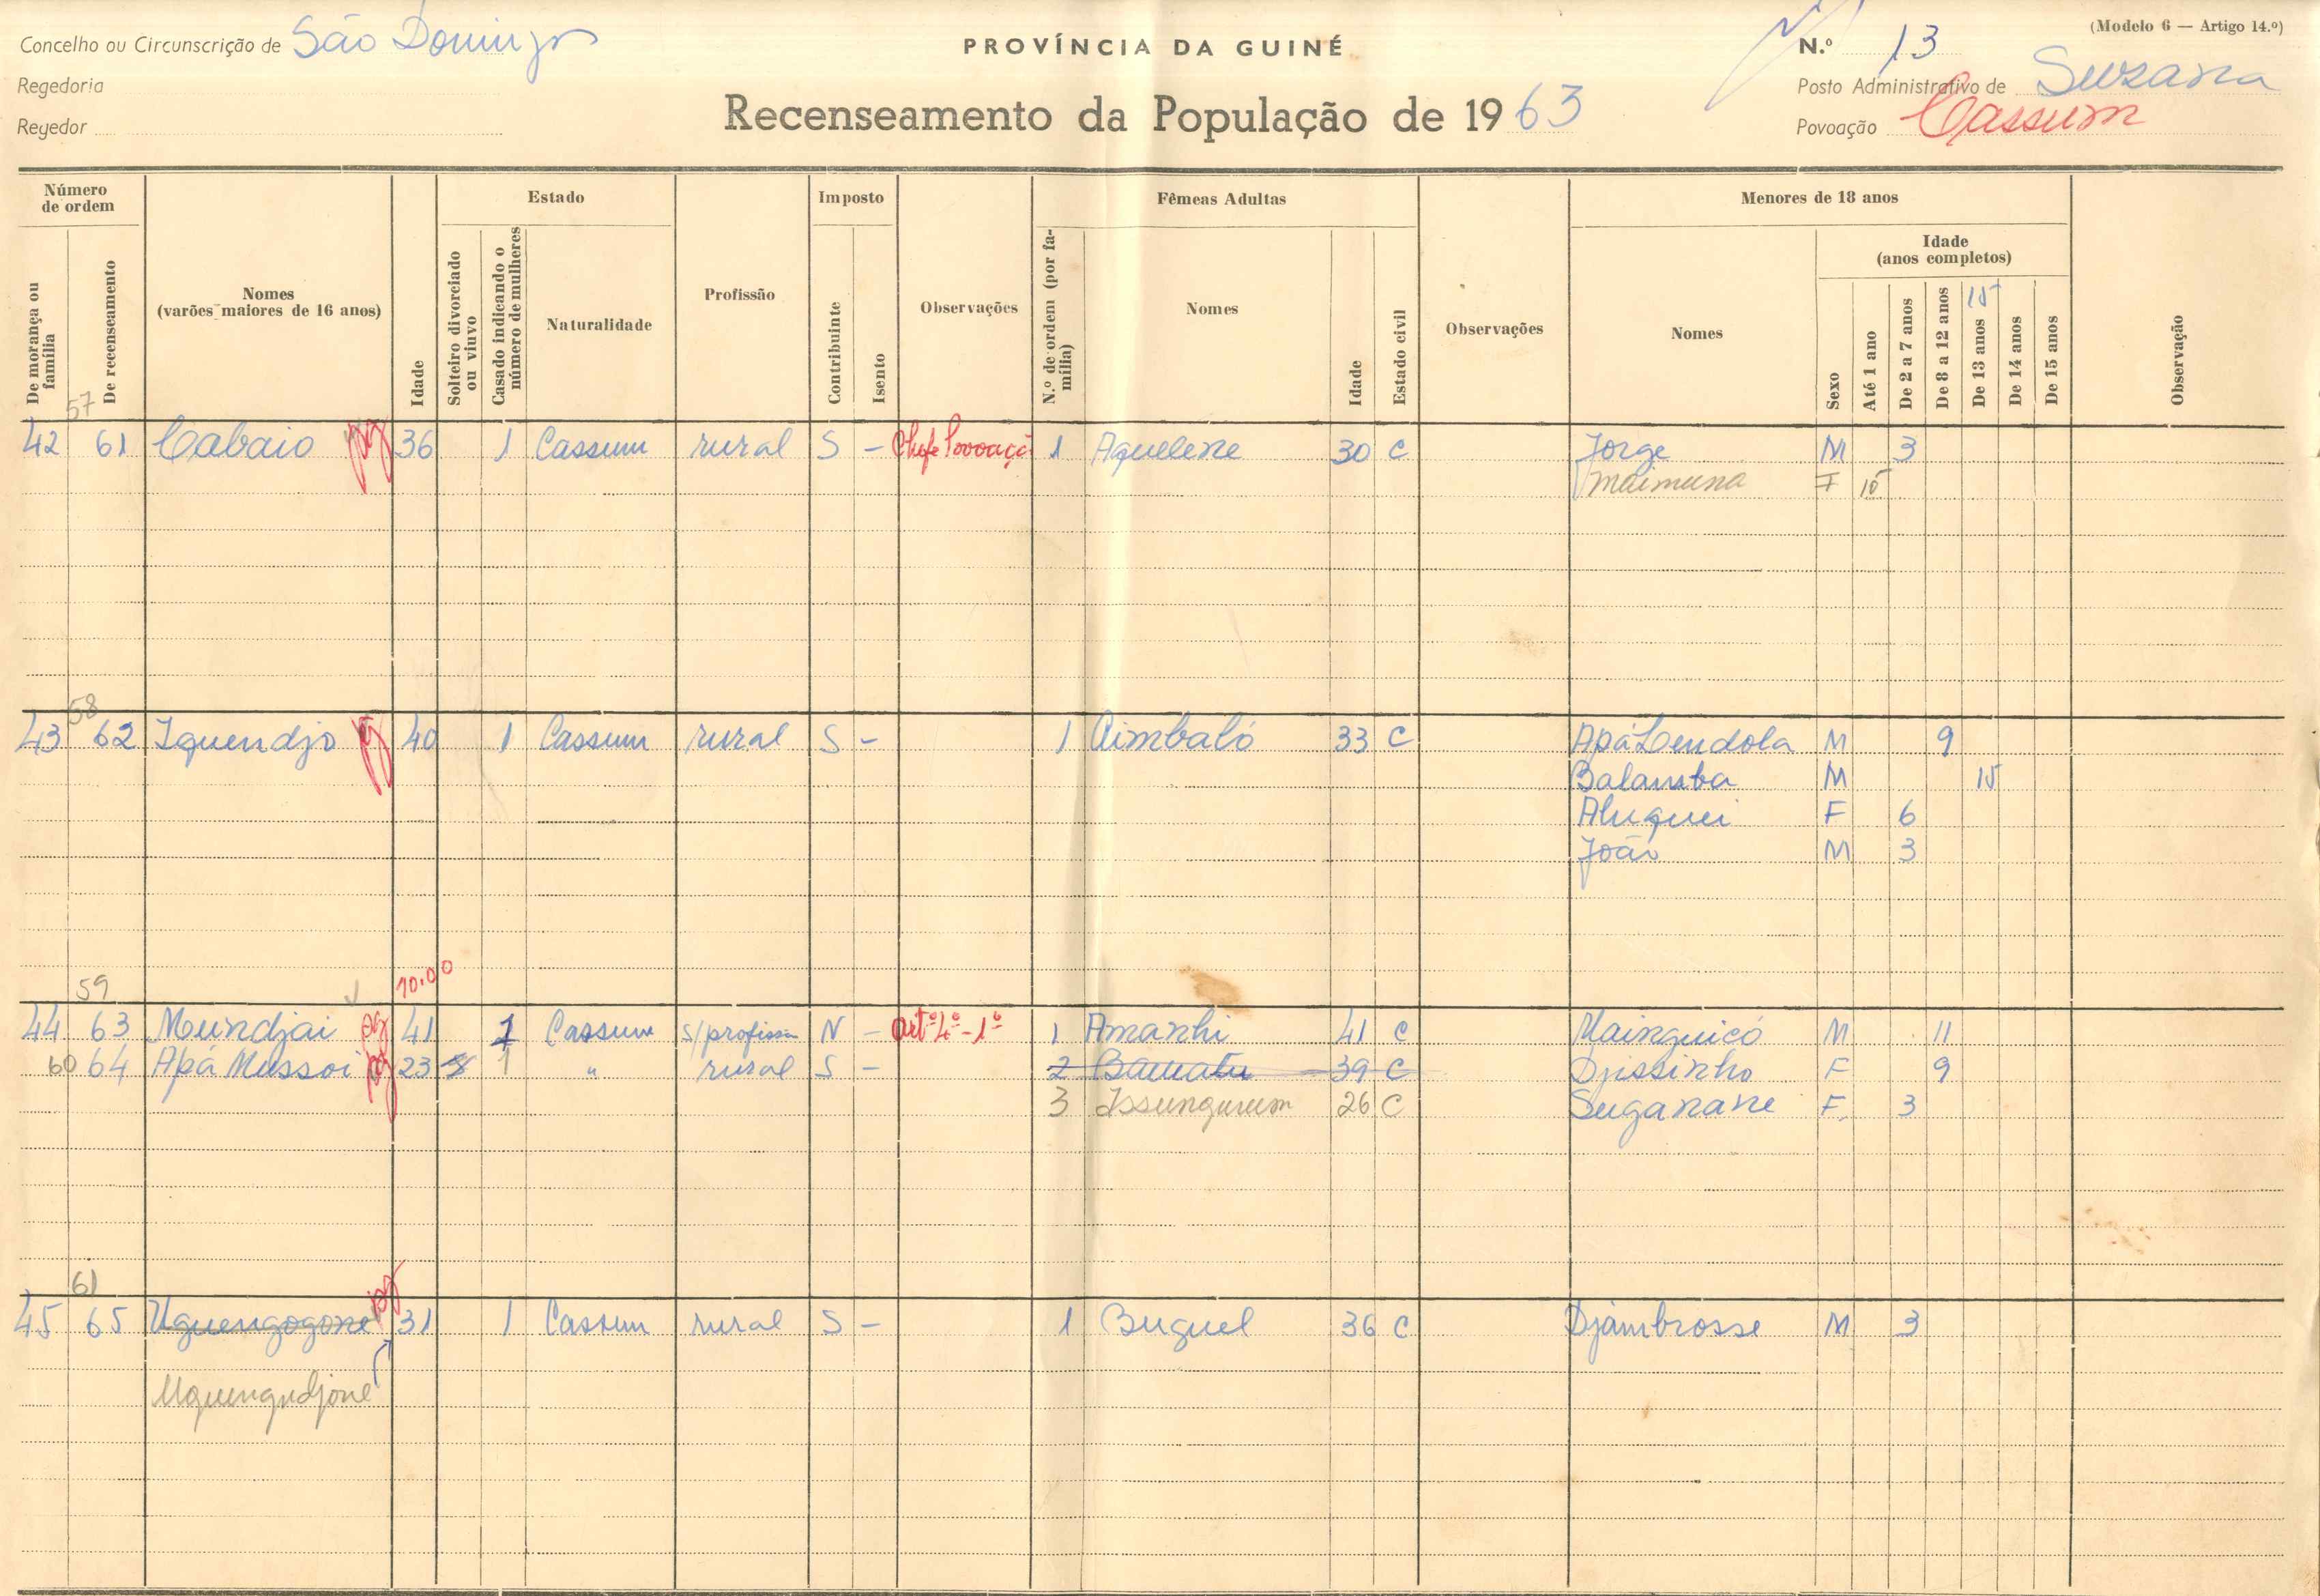 Concelho ou Circunscrição de São Domingos
PROVÍNCIA DA GUINÉ
N.º 13
(Modelo 6 — Artigo 14.º)
Regedoria
Posto Administrativo de Suzana
Regedor
Recenseamento da População de 1963
Povoação Cassum
Número de ordem
De morança ou família
De recenseamento
Nomes (varões maiores de 16 anos)
Idade
Estado
Solteiro divorciado ou viuvo
Casado indicando o número de mulheres
Naturalidade
Profissão
Imposto
Contribuinte
Isento
Observações
Fêmeas Adultas
N.º de ordem (por família)
Nomes
Idade
Estado civil
Observações
Menores de 18 anos
Nomes
Sexo
Idade (anos completos)
Até 1 ano
De 2 a 7 anos
De 8 a 12 anos
15
De 13 anos
De 14 anos
De 15 anos
Observação
57
42 61 Cabaio pg 36 1 Cassum rural S - Chefe Povoaçã 1 Aquelene 30 C Jorge M 3
Maimuna F 15
58
43 62 Iquendjo pg 40 1 Cassum rural S - 1 Aimbaló 33 C Apá Lendola M 9
Balamba M 15
Aluquei F 6
João M 3
59 10.00
44 63 Mundjai pg 41 1 Cassum s/profissão N - artº 4º - 1º 1 Amanhi 41 C Mainguicó M 11
60 64 Apá Mussoi pg 23 S 1 " rural S - 2 Bamatu 39 C Djissinho F 9
3 Issungurum 26 C Suganane F 3
61
45 65 Uguengogone pg 31 1 Cassum rural S - 1 Buguel 36 C Djambrosse M 3
Uguengudjone